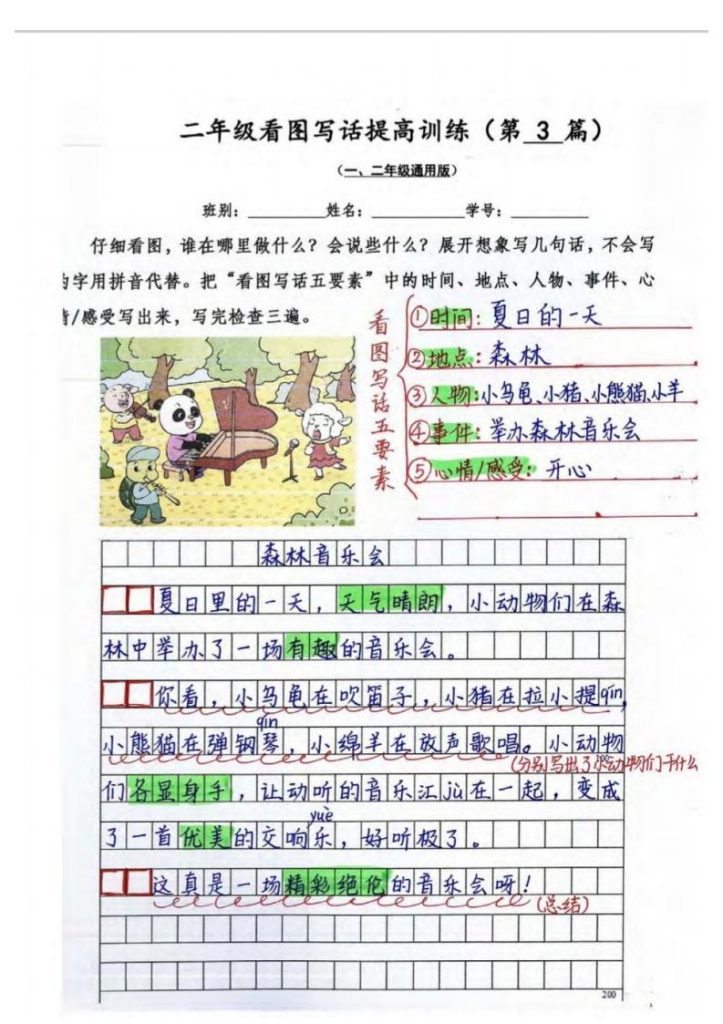 二年级看图写话提高训练（第 3 篇）
（一、二年级通用版）
班别：________姓名：________学号：________
仔细看图，谁在哪里做什么？会说些什么？展开想象写几句话，不会写
的字用拼音代替。把“看图写话五要素”中的时间、地点、人物、事件、心
情/感受写出来，写完检查三遍。
看图写话五要素
①时间：夏日的一天
②地点：森林
③人物：小乌龟、小猪、小熊猫、小羊
④事件：举办森林音乐会
⑤心情/感受：开心
森林音乐会
夏日里的一天，天气晴朗，小动物们在森
林中举办了一场有趣的音乐会。
你看，小乌龟在吹笛子，小猪在拉小提qín，
qín
小熊猫在弹钢琴，小绵羊在放声歌唱。小动物
(分别写出了小动物们干什么
们各显身手，让动听的音乐汇jù在一起，变成
yuè
了一首优美的交响乐，好听极了。
这真是一场精彩绝伦的音乐会呀！
(总结)
200